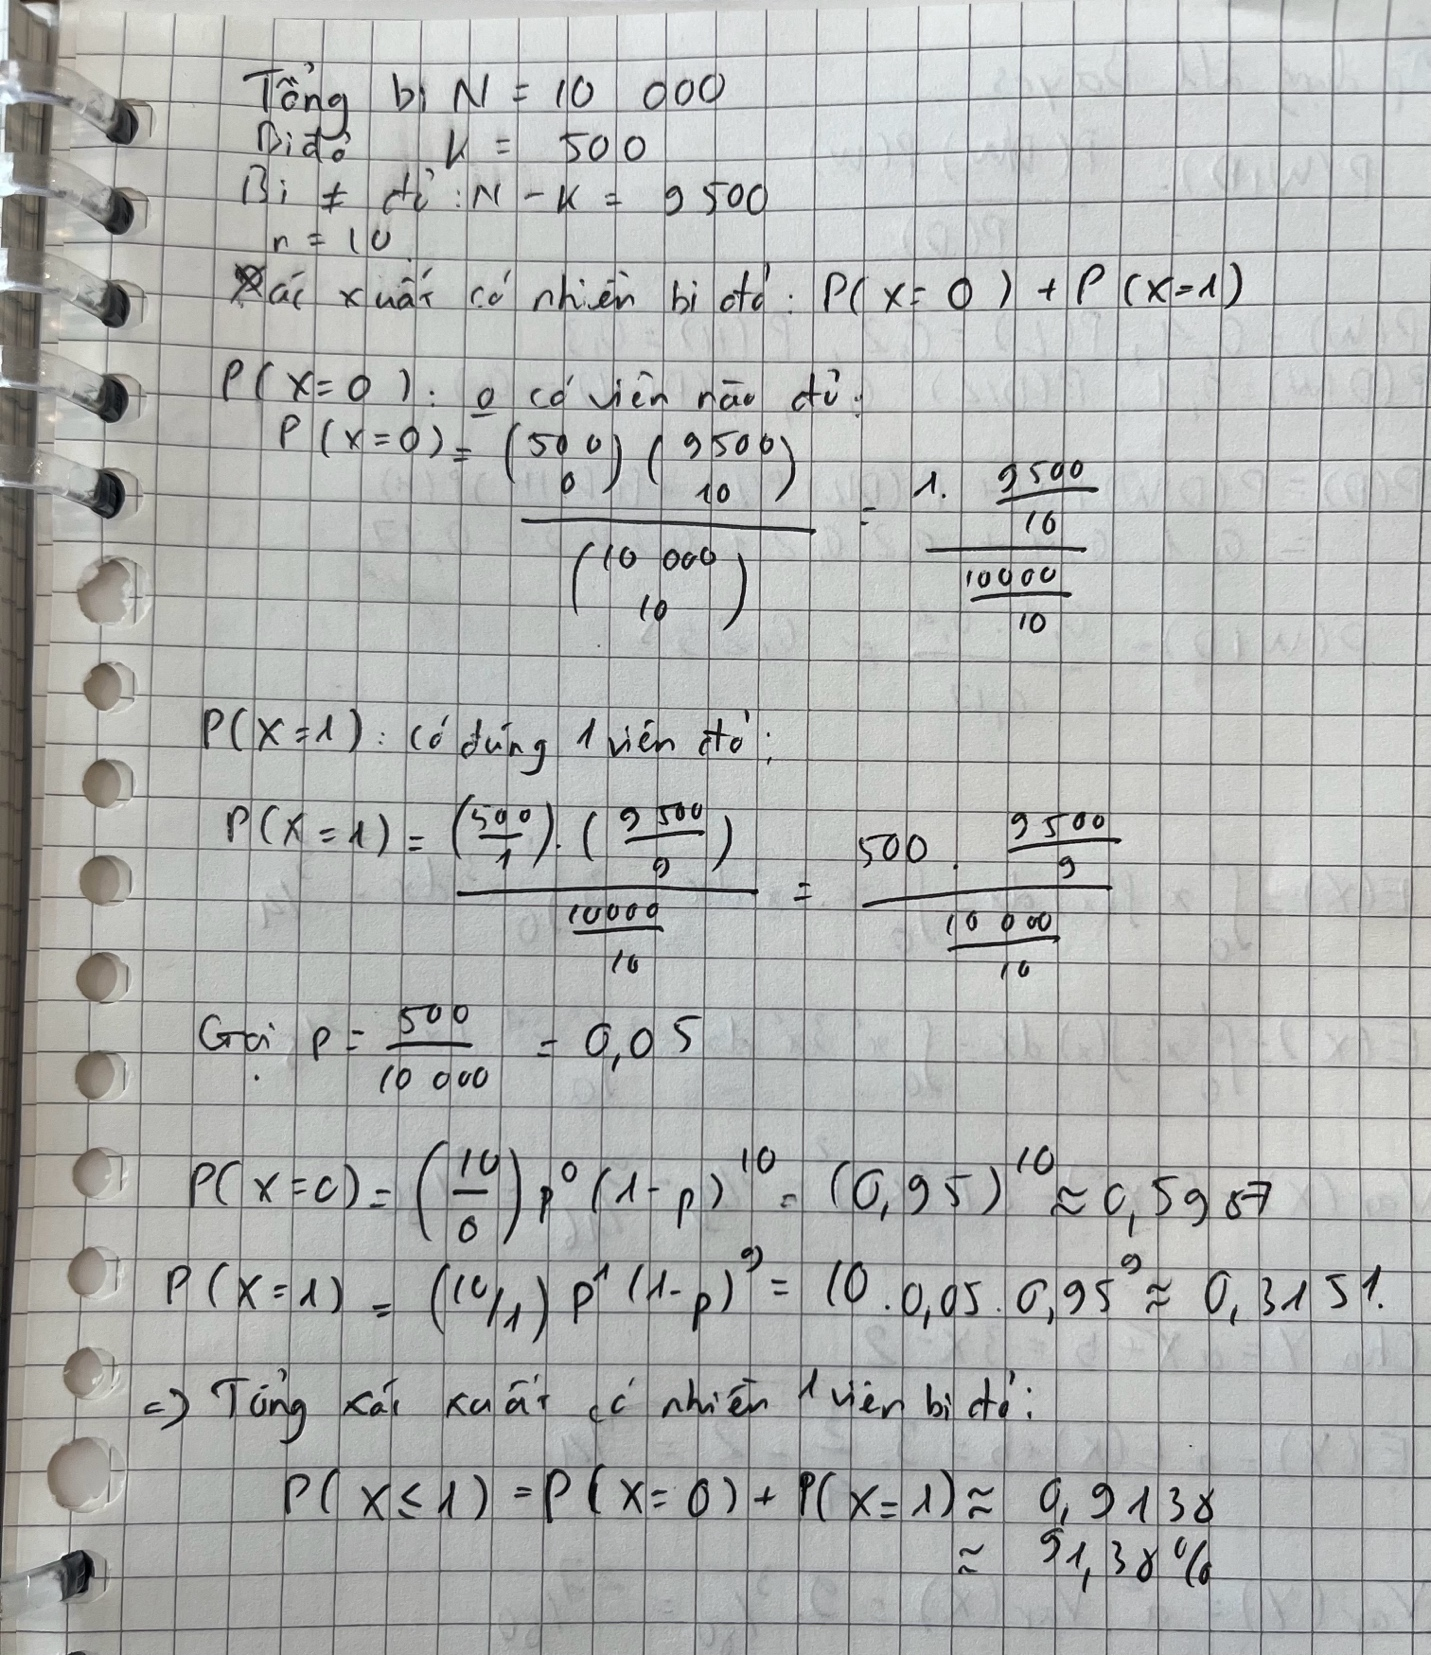 Tổng bi N = 10 000
Bi đỏ K = 500
Bi ≠ đỏ : N - K = 9500
n = 10
Xác xuất có nhiên bi đỏ : P(X=0) + P(X=1)
P(X=0) : o có viên nào đỏ :
P(X=0) = (500 0)(9500 10) / (10 000 10) = 1. 9500/10 / 10000/10
P(X=1) : có đúng 1 viên đỏ :
P(X=1) = (500/1).(9500/9) / 10000/10 = 500 . 9500/9 / 10 000/10
Gọi p = 500/10 000 = 0,05
P(X=0) = (10/0) p^0 (1-p)^10 = (0,95)^10 ≈ 0,5987
P(X=1) = (10/1) p^1 (1-p)^9 = 10.0,05.0,95^9 ≈ 0,3151.
=> Tổng xác xuất có nhiên 1 viên bi đỏ :
P(X≤1) = P(X=0) + P(X=1) ≈ 0,9138
≈ 91,38%